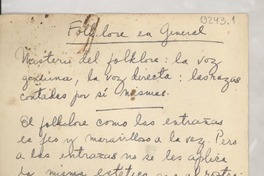 0243.1
Folklore en General
Misterio del folklore: la voz
genuina, la voz directa: las razas
contadas por sí mismas.
El folklore como las entrañas
es feo y maravilloso a la vez. Pero
a las entrañas no se les aplica
la misma estética que al rostro